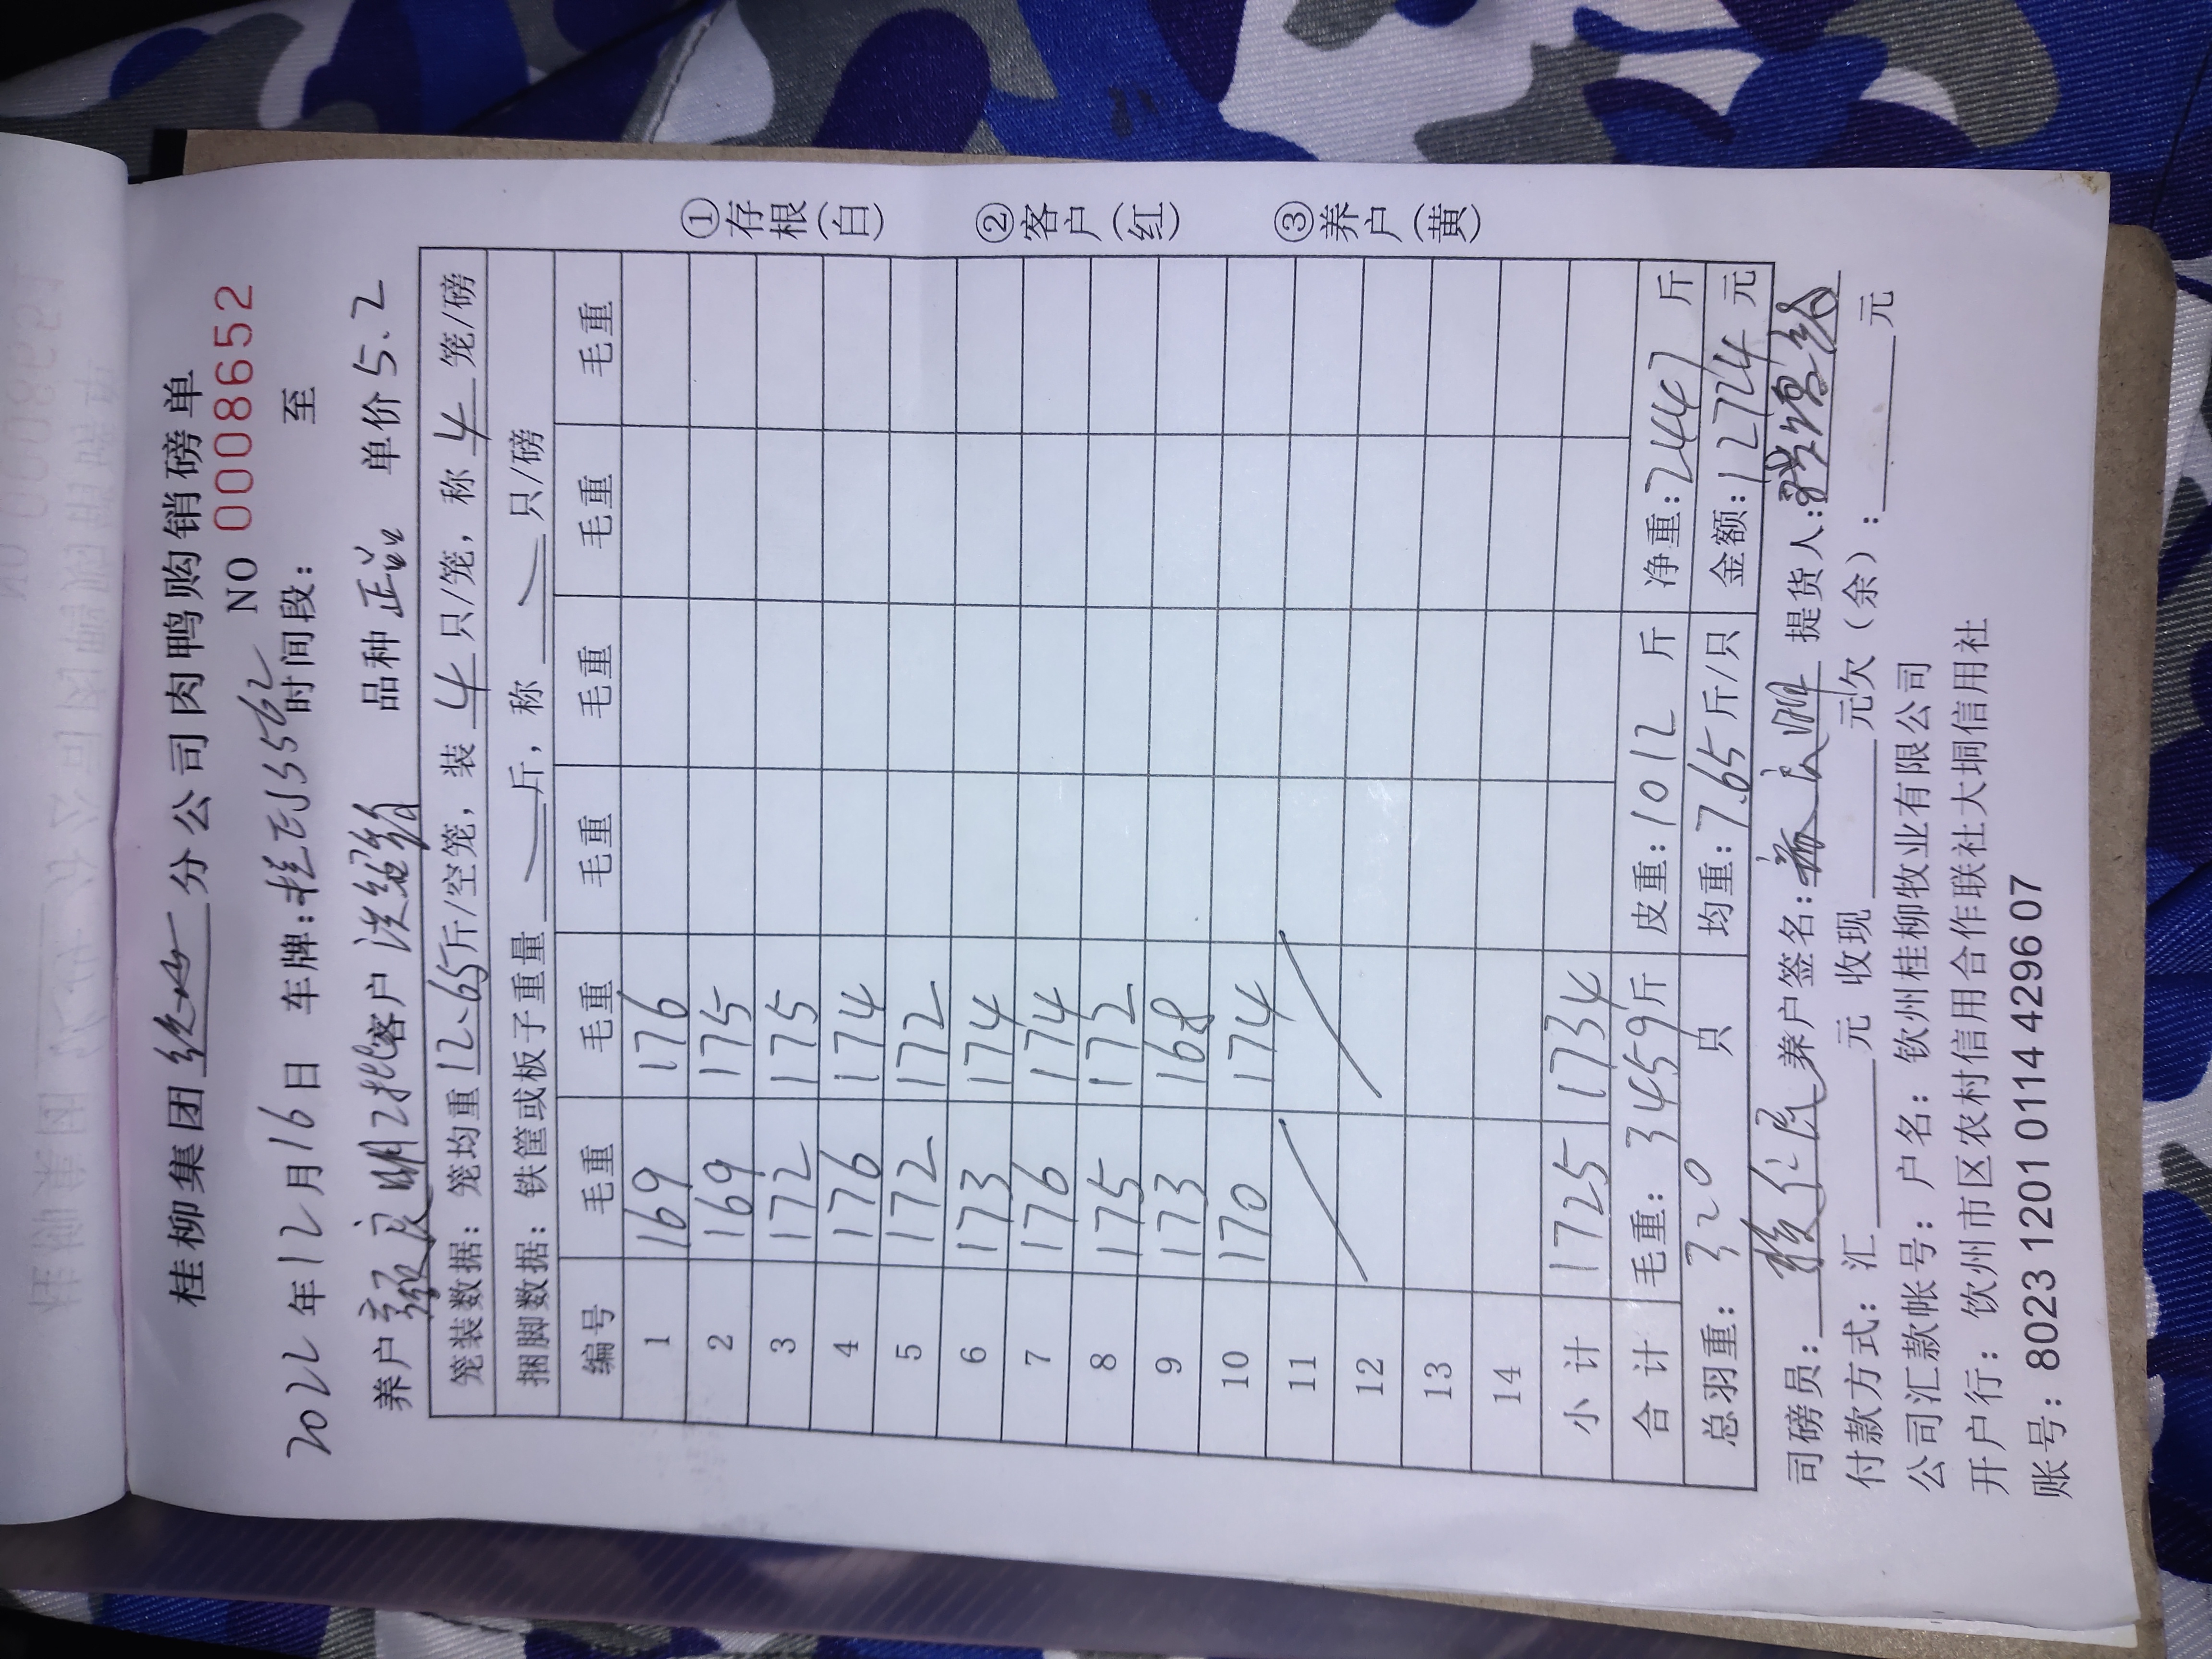 桂柳集团 分公司肉鸭购销磅单
NO 0008652
2022年12月16日 车牌: 时间段: 至
养户 客户 品种 正品 单价 5.2
笼装数据: 笼均重 12.65 斤/空笼, 装 4 只/笼, 称 4 笼/磅
捆脚数据: 铁筐或板子重量 斤, 称 只/磅
编号 毛重 毛重 毛重 毛重 毛重 毛重
1 169 176
2 169 175
3 172 175
4 176 174
5 172 172
6 173 174
7 176 174
8 175 172
9 173 168
10 170 174
11
12
13
14
小计 1725 1734
合计 毛重: 3459 斤 皮重: 1012 斤 净重: 2447 斤
总羽重: 320 只 均重: 7.65 斤/只 金额: 12724 元
司磅员: 养户签名: 提货人:
付款方式: 汇 元 收现 元欠(余): 元
公司汇款帐号: 户名: 钦州桂柳牧业有限公司
开户行: 饮州市区农村信用合作联社大垌信用社
账号: 8023 1201 0114 4296 07
①存根(白)
②客户(红)
③养户(黄)